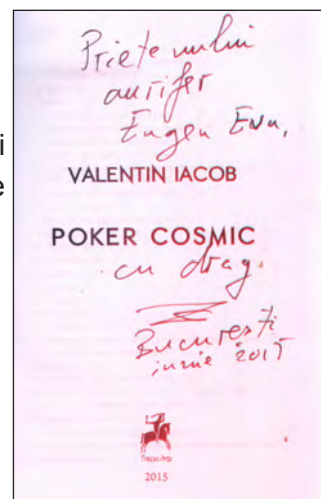 Prietenului
aurifer
Eugen Evu,
i
VALENTIN IACOB
e
POKER COSMIC
cu drag.
București
iunie 2015
2015